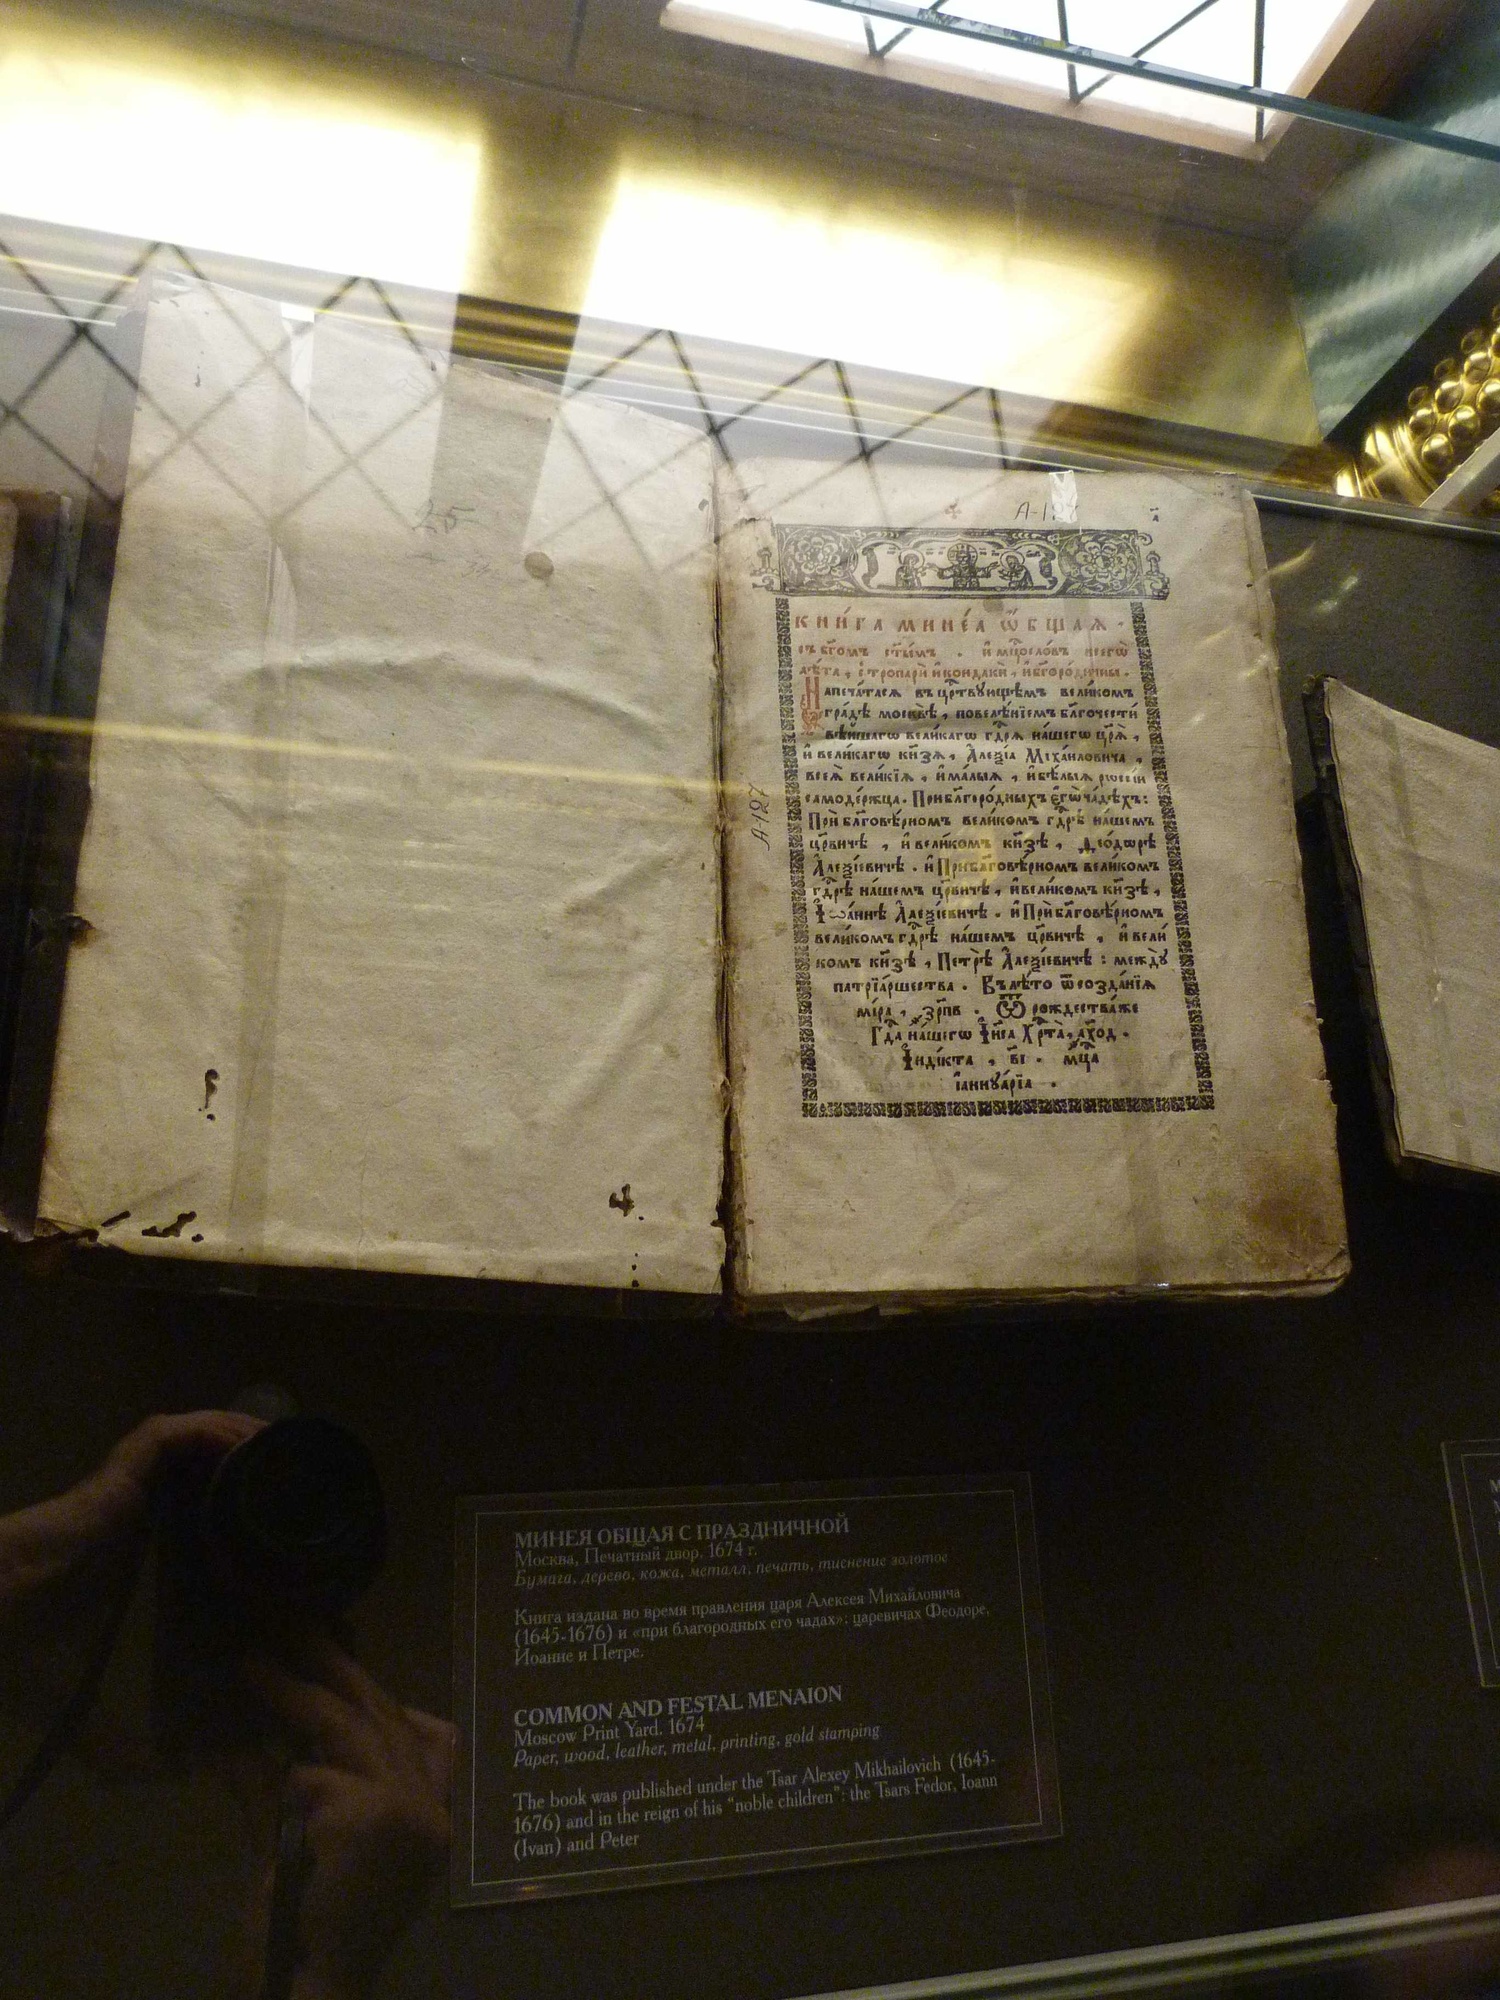 А-127
КНИ́ГА МИНЕ́А Ѿ́БЩАЯ.
съ бг҃омъ ст҃ы́мъ . и҆ мцⷭ҇осло́въ всегѡ̀
лѣ́та , с̾ тропари̑ и҆ кондаки̑ , и҆ бг҃оро́дичны .
Напеча́тася въ црⷭ҇твꙋющемъ вели́комъ
гра́дѣ москвѣ̀ , повелѣ́нїемъ благочести́
вѣ́йшагѡ вели́кагѡ гдⷭ҇рѧ̀ на́шегѡ цр҃ѧ̀ ,
и҆ вели́кагѡ кн҃зѧ , А҆леѯі́а Міха́иловича ,
всеѧ̀ вели́кїѧ , и҆ ма́лыѧ , и҆ бѣ́лыѧ рѡссі́и
самоде́ржца . При благоро́дныхъ є҆гѡ̀ ча́дѣхъ :
При благовѣ́рномъ вели́комъ гдⷭ҇рѣ̀ на́шемъ
црⷭ҇вичѣ , и҆ вели́комъ кн҃зѣ , Ѳео́дѡрѣ
А҆леѯі́евичѣ . и҆ При благовѣ́рномъ вели́комъ
гдⷭ҇рѣ̀ на́шемъ црⷭ҇вичѣ , и҆ вели́комъ кн҃зѣ ,
І҆ѡа́ннѣ А҆леѯі́евичѣ . и҆ При благовѣ́рномъ
вели́комъ гдⷭ҇рѣ̀ на́шемъ црⷭ҇вичѣ , и҆ вели́
комъ кн҃зѣ , Петрѣ̀ А҆леѯі́евичѣ : междꙋ̀
патрїа́ршества . Въ лѣ́то ѿ созда́нїѧ
мі́ра , ҂зрп҃в . Ѿ рождества́ же
Гдⷭ҇а на́шегѡ І҆и҃са Хрⷭ҇та̀ , ҂ахо҃д .
І҆ндї́кта , в҃і . мцⷭ҇а
і҆аннꙋа́рїа .
А-127
МИНЕЯ ОБЩАЯ С ПРАЗДНИЧНОЙ
Москва, Печатный двор. 1674 г.
Бумага, дерево, кожа, металл, печать, тиснение золотое
Книга издана во время правления царя Алексея Михайловича
(1645-1676) и «при благородных его чадах»: царевичах Феодоре,
Иоанне и Петре.
COMMON AND FESTAL MENAION
Moscow Print Yard. 1674
Paper, wood, leather, metal, printing, gold stamping
The book was published under the Tsar Alexey Mikhailovich (1645-
1676) and in the reign of his "noble children": the Tsars Fedor, Ioann
(Ivan) and Peter